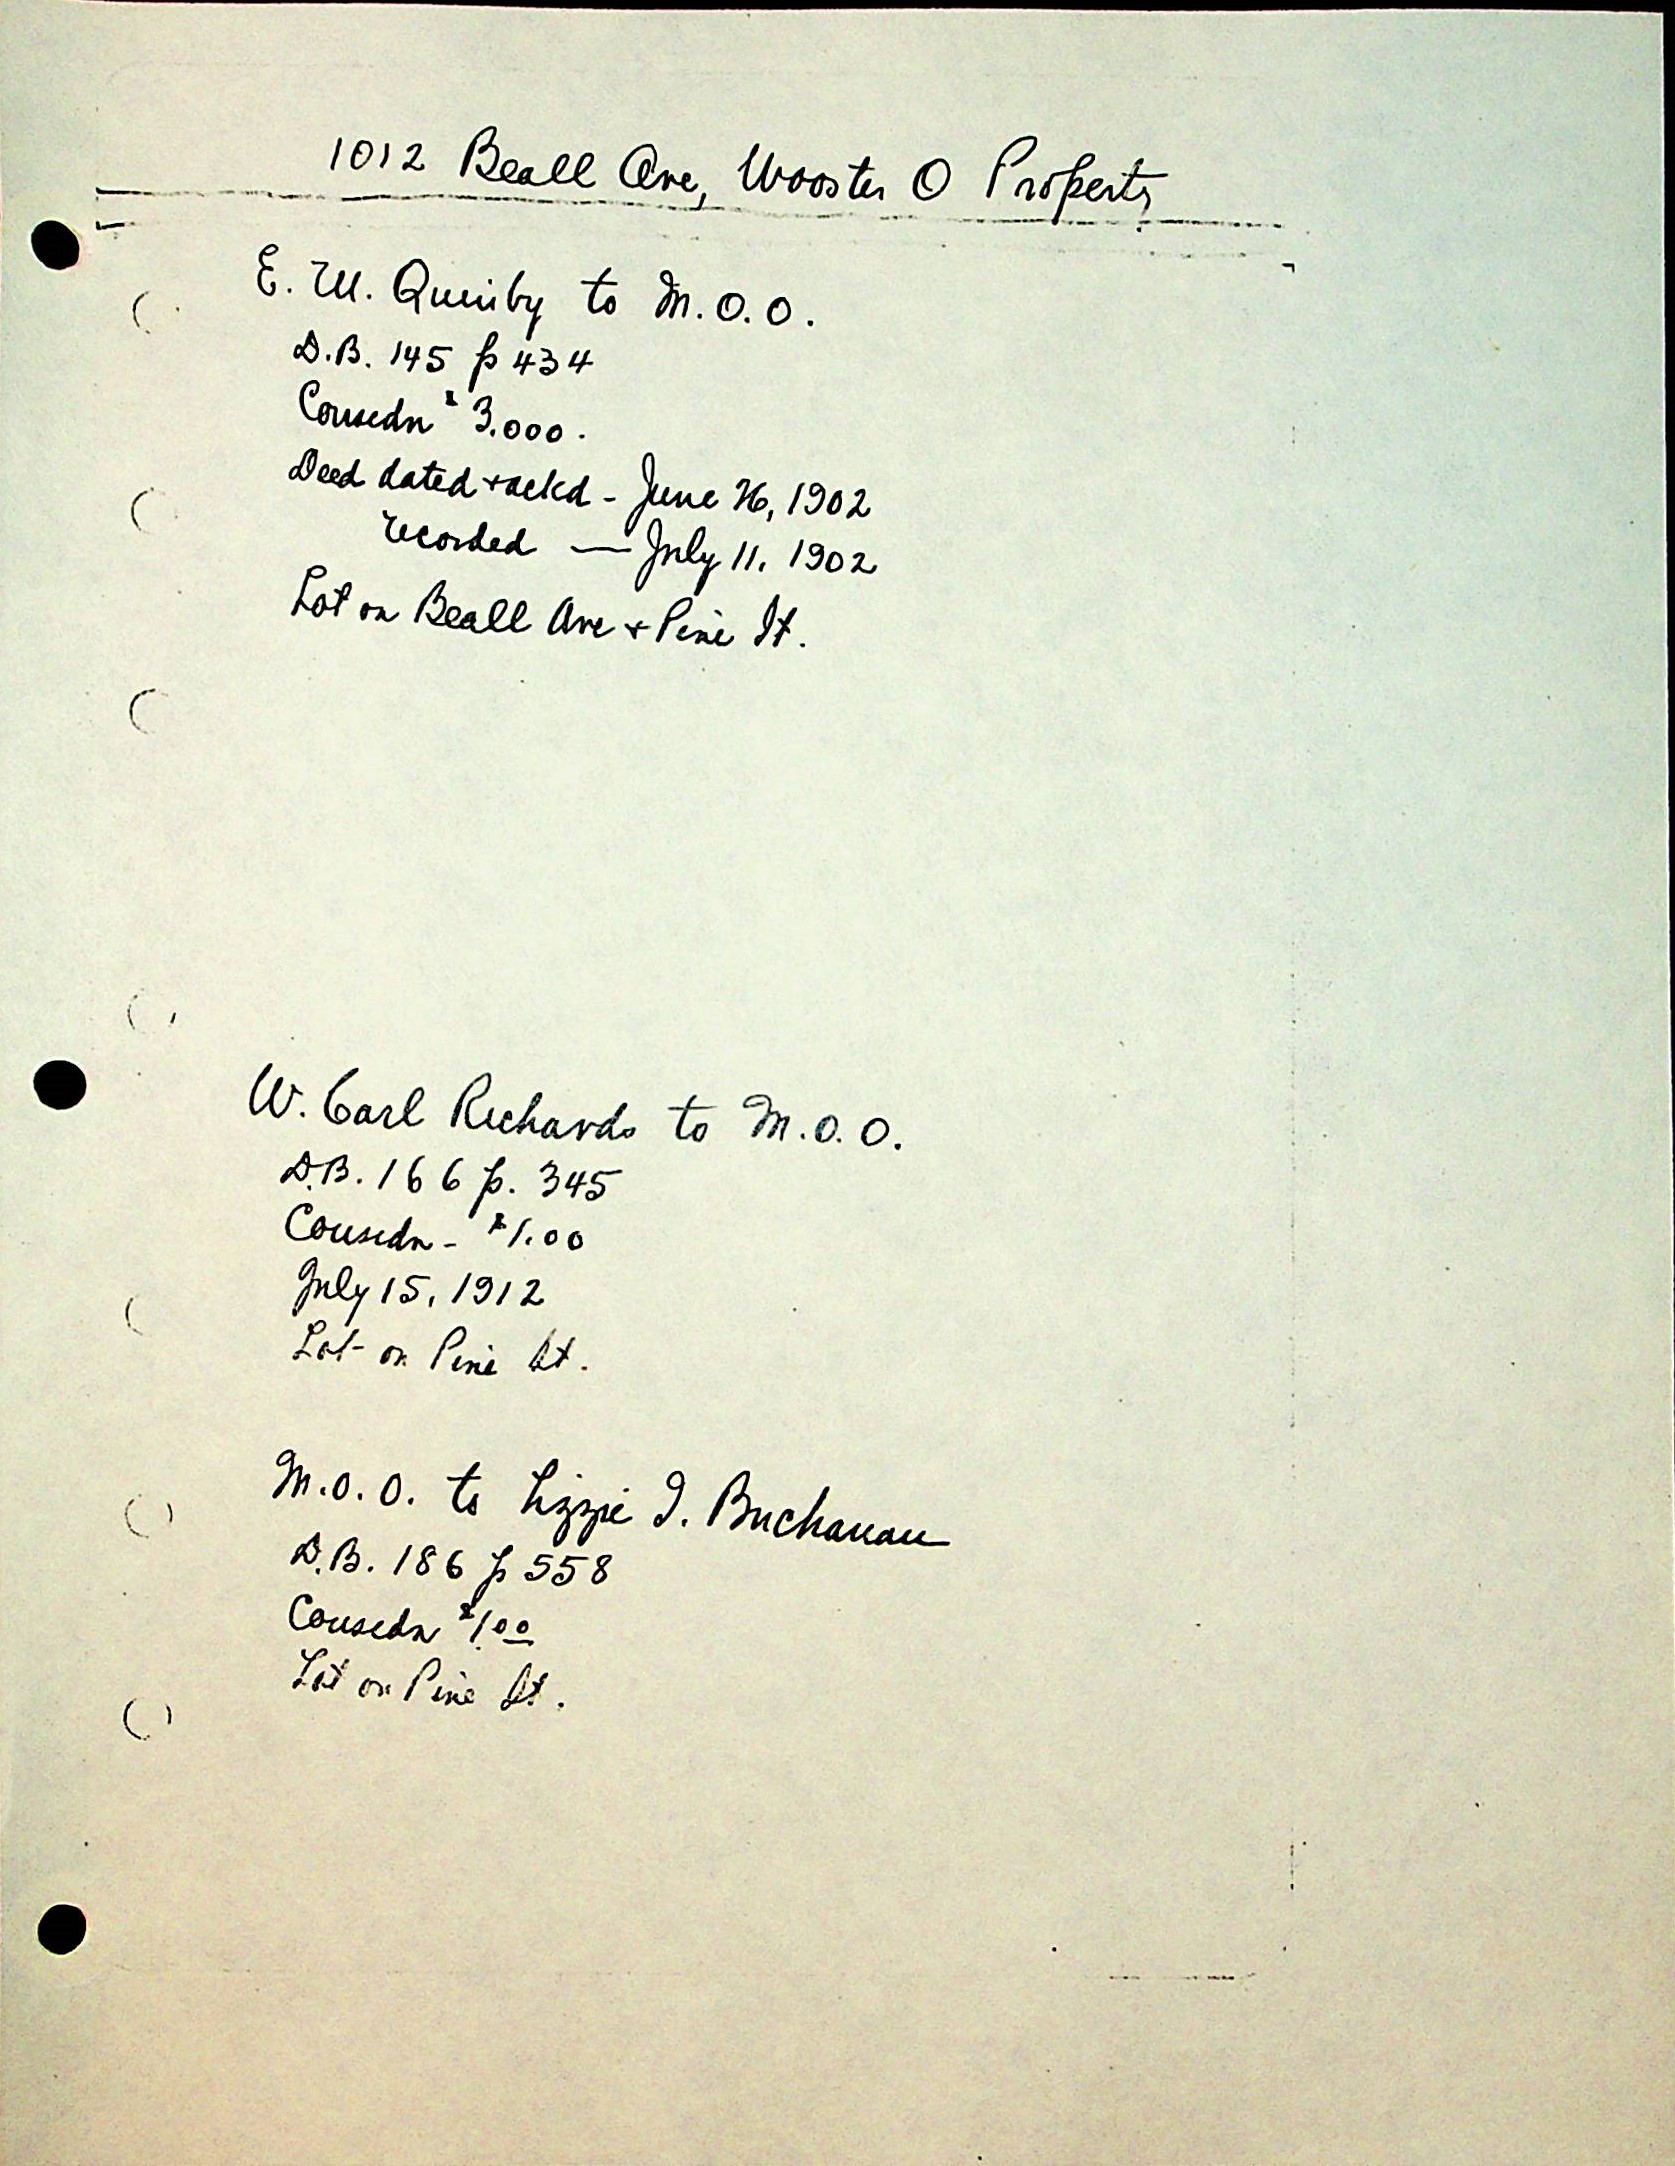 1012 Beall Ave, Wooster O Property
E. W. Quinby to M.O.O.
D.B. 145 p 434
Consedn $3,000.
Deed dated + ackd - June 26, 1902
recorded — July 11, 1902
Lot on Beall Ave + Pine St.
W. Carl Richards to M.O.O.
D.B. 166 p. 345
Consedn - $1.00
July 15, 1912
Lot on Pine St.
M.O.O. to Lizzie I. Buchanan
D.B. 186 p 558
Consedn $1.00
Lot on Pine St.